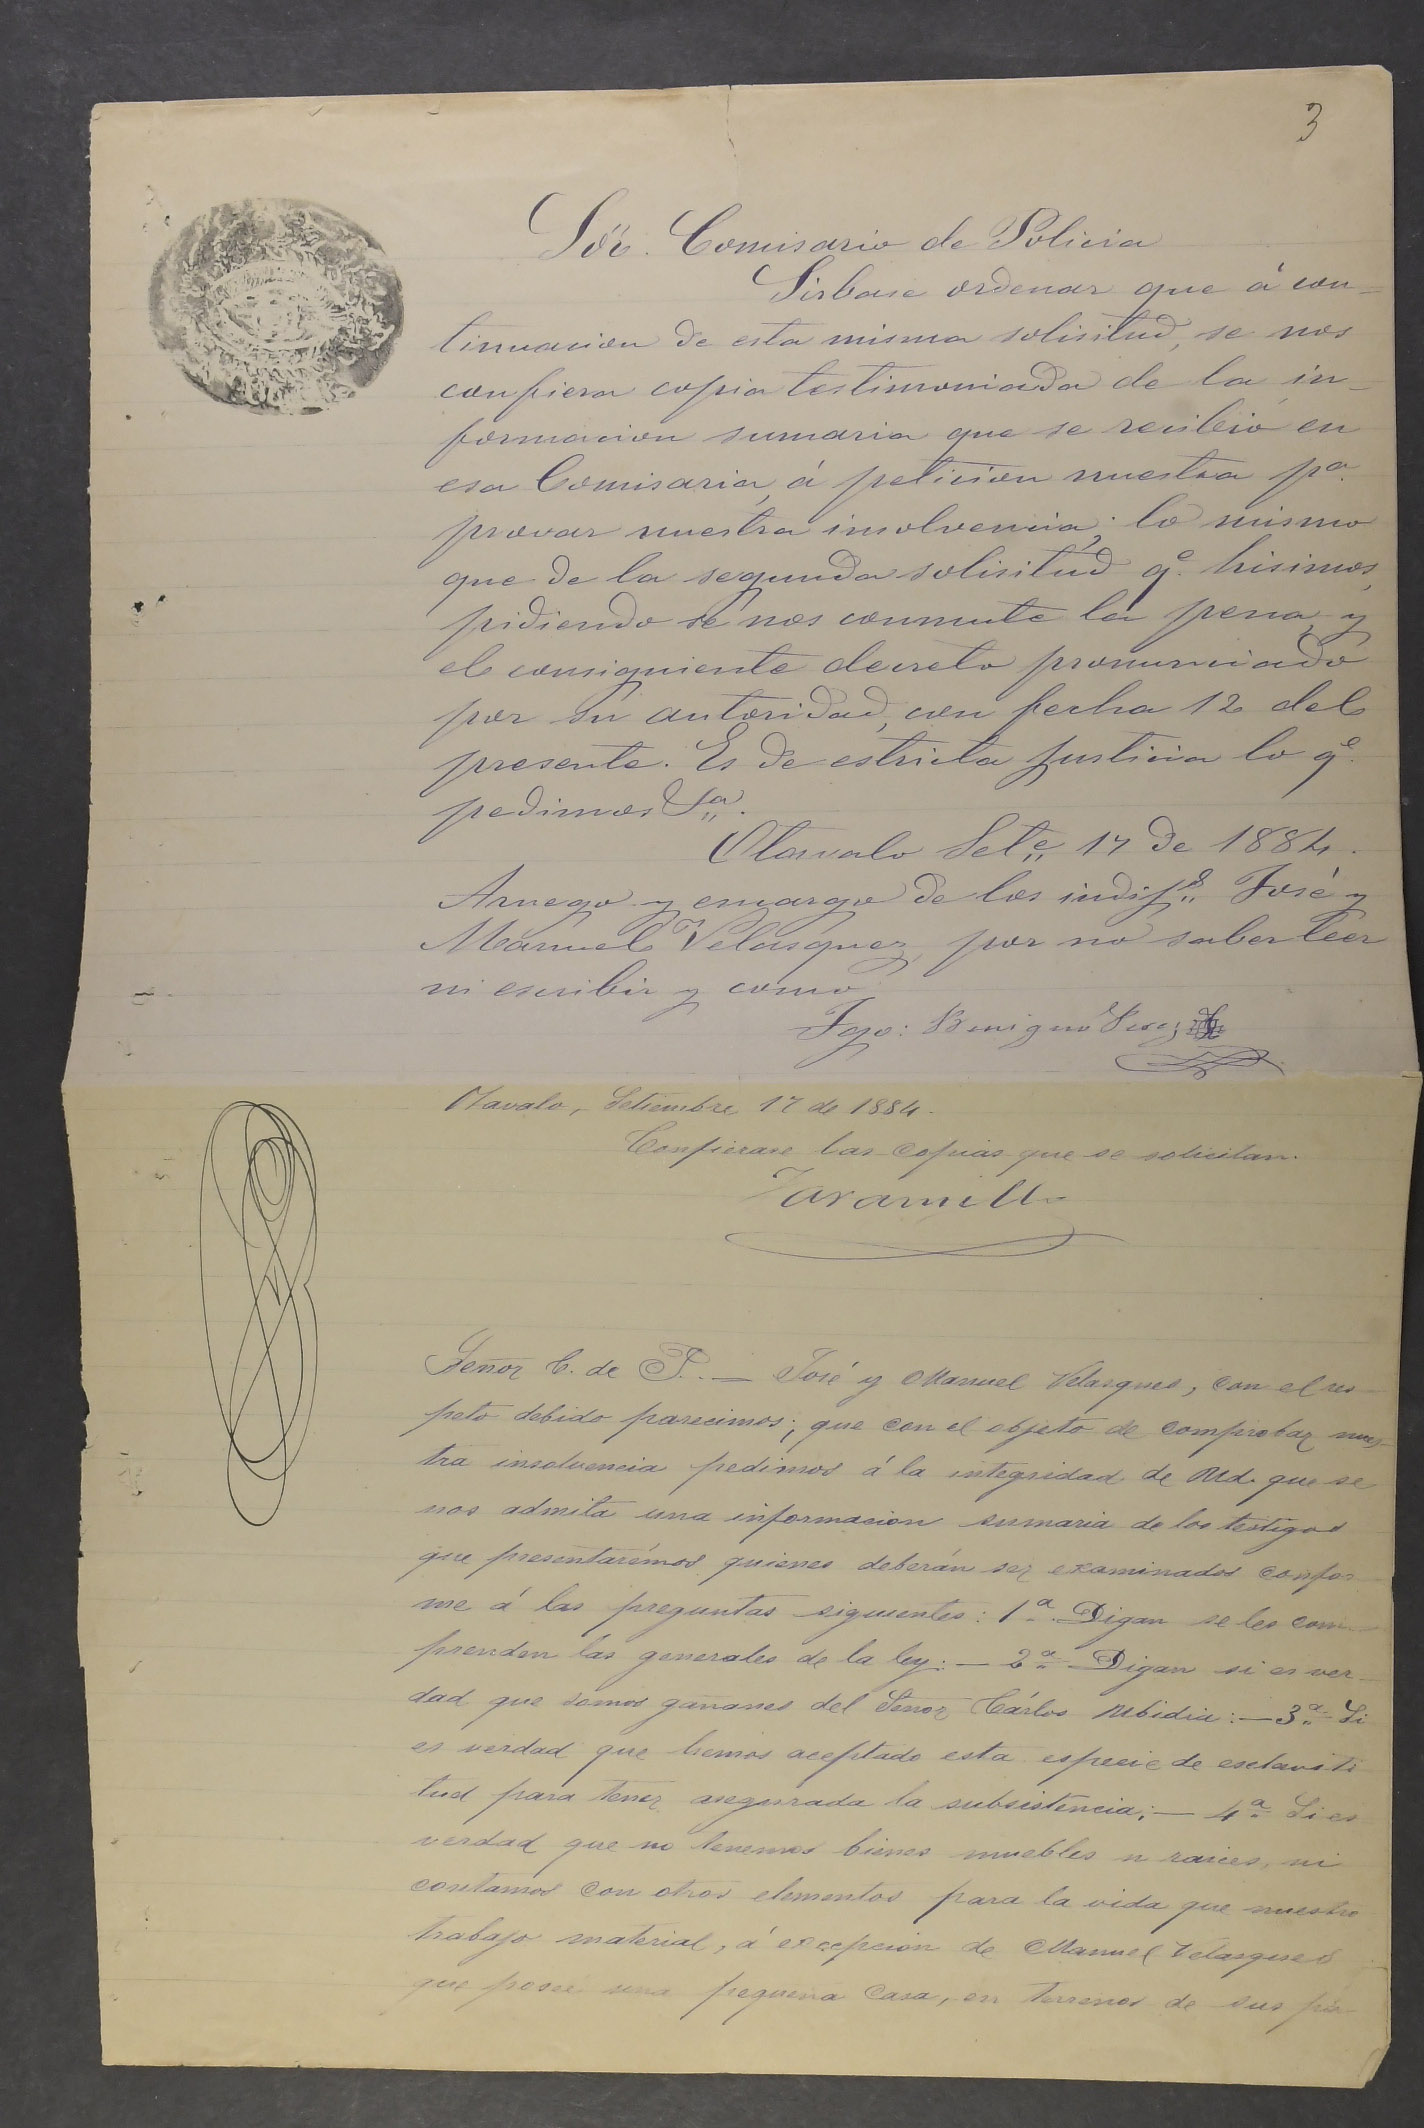 3
Sör. Comisario de Policia
Sirbase ordenar que á con-
tinuacion de esta misma solisitud, se nos
confiera copia testimoniada de la in-
formacion sumaria que se recibió en
esa Comisaria, á peticion nuestra pa.
provar nuestra insolvencia; lo mismo
que de la segunda solisitud qe. hisimos,
pidiendo se nos conmute la pena, y
el consiguiente decreto pronunciado
por su autoridad, con fecha 12 del
presente. Es de estricta justicia lo qe.
pedimos
Otavalo Sete. 17 de 1884.
Arruego y encargo de los indijs. José y
Manuel Velasquez, por no saber leer
ni escribir y como
Tgo: Benigno
Otavalo, Setiembre 17 de 1884.
Confierase las copias que se solicitan.
Jaramillo
Señor C. de P. — José y Manuel Velasques, con el res-
peto debido parecimos; que con el objeto de comprobar nues-
tra insolvencia pedimos á la integridad de Ud. que se
nos admita una informacion sumaria de los testigos
que presentarémos quienes deberán ser examinados confor-
me á las preguntas siguientes: 1a. Digan se les com-
prenden las generales de la ley: — 2a. Digan si es ver-
dad que somos gañanes del Señor Cárlos Ubidia: — 3a. Si
es verdad que hemos aceptado esta especie de esclaviti
tud para tener asegurada la subsistencia; — 4a. Si es
verdad que no tenemos bienes muebles n raices, ni
contamos con otros elementos para la vida que nuestro
trabajo material, á excepcion de Manuel Velasques
que poseé una pequeña casa, en terrenos de sus pa-